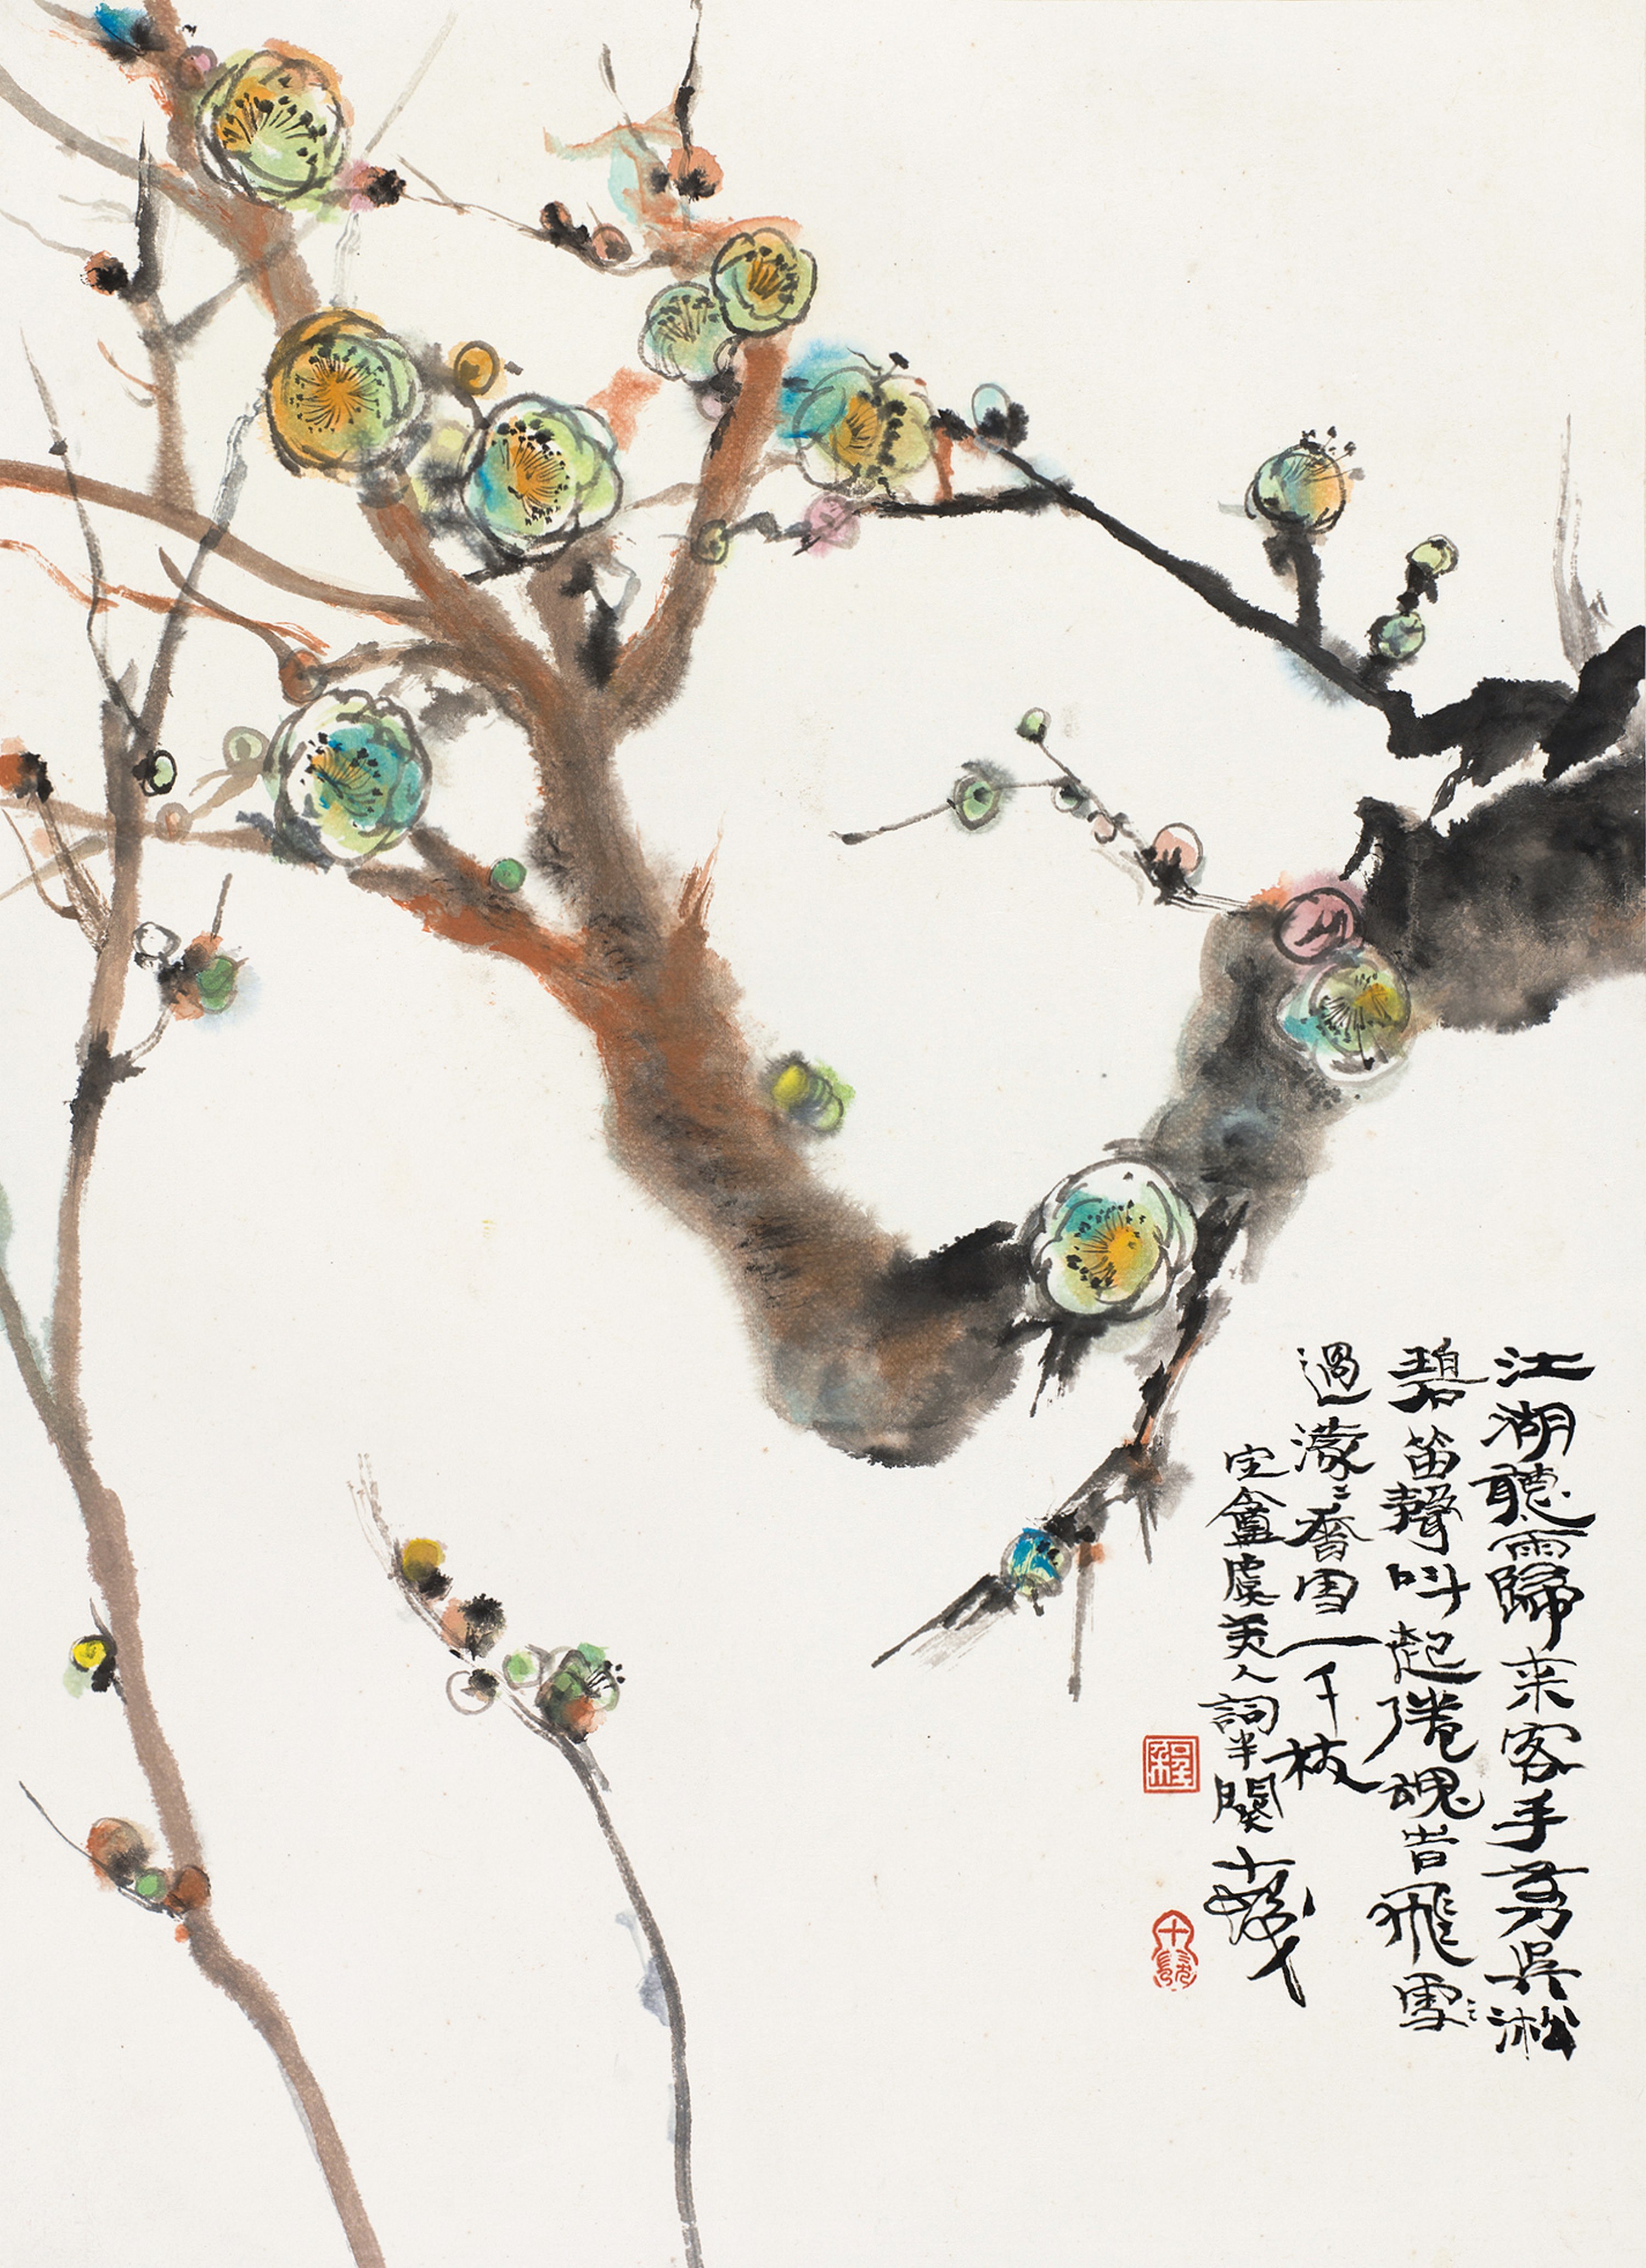 江湖聽雨歸来客手剪吳淞
碧笛聲叫起倦魂旹飛雪
過濛〻香雪一千枝
定盦虞美人詞半闋 十髮
程
十髮